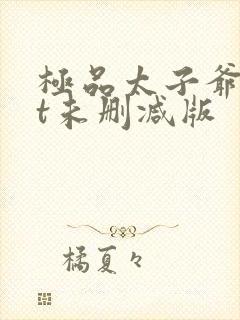 極品太子爺
t未删减版
橘夏々